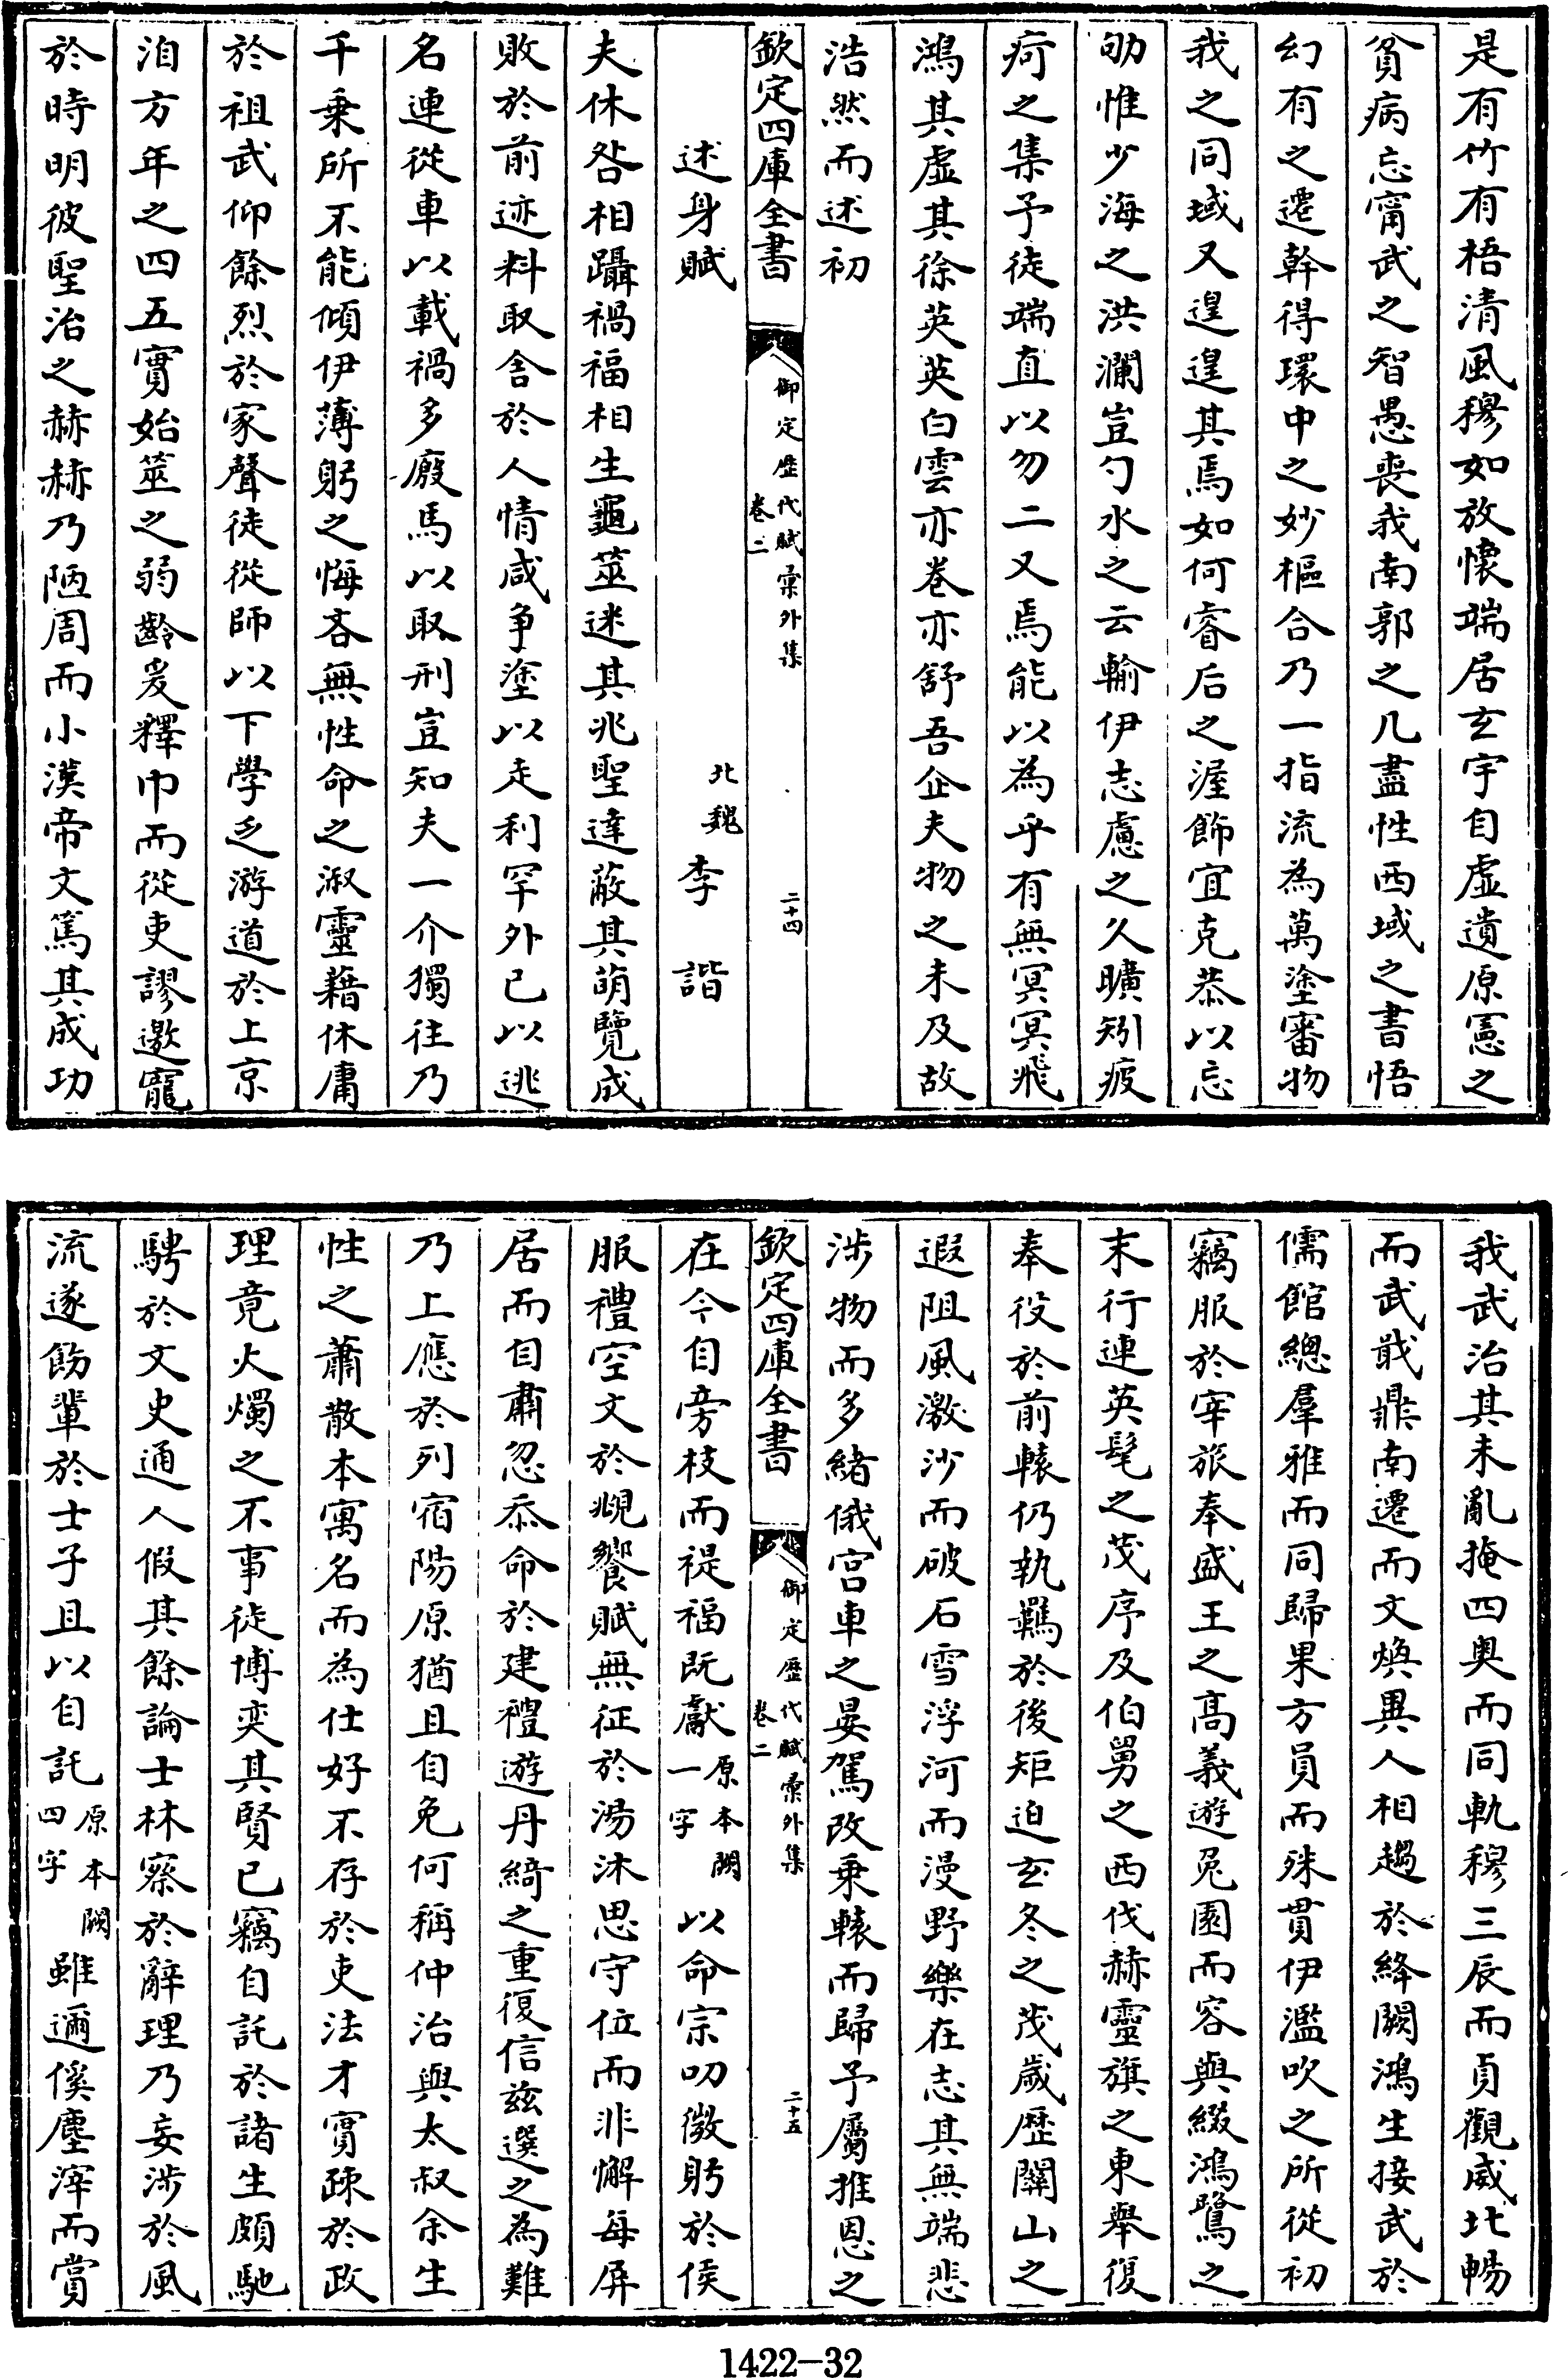 是有竹有梧清風穆如放懷端居玄宇自虛遺原憲之
貧病忘甯武之智愚喪我南郭之几盡性西域之書悟
幻有之遷幹得環中之妙樞合乃一指流為萬塗審物
我之同域又遑遑其焉如何睿后之渥飾宜克恭以忘
劬惟少海之洪瀾豈勺水之云輸伊志慮之久曠矧疲
疴之集予徒端直以勿二又焉能以為乎有無冥冥飛
鴻其虛其徐英英白雲亦卷亦舒吾企夫物之未及故
浩然而述初
欽定四庫全書
御定歴代賦彚外集
卷二
二十四
述身賦
北魏李諧
夫休咎相躡禍福相生龜筮迷其兆聖達蔽其萌覽成
敗於前迹料取舍於人情咸争塗以走利罕外已以逃
名連從車以載禍多廐馬以取刑豈知夫一介獨往乃
千乗所不能傾伊薄躬之悔吝無性命之淑靈藉休庸
於祖武仰餘烈於家聲徒從師以下學乏游道於上京
洎方年之四五實始筮之弱齡爰釋巾而從吏謬邀寵
於時明彼聖治之赫赫乃陋周而小漢帝文篤其成功
我武治其未亂掩四奥而同軌穆三辰而貞觀威北暢
而武戢鼎南遷而文煥異人相趨於絳闕鴻生接武於
儒館總羣雅而同歸果方員而殊貫伊濫吹之所從初
竊服於宰旅奉盛王之高義遊兎園而容與綴鴻鷺之
末行連英髦之茂序及伯舅之西伐赫靈旗之東舉復
奉役於前轅仍執羈於後矩迫玄冬之茂歲歴闗山之
遐阻風激沙而破石雪浮河而漫野樂在志其無端悲
涉物而多緒俄宫車之晏駕改乗轅而歸予屬推恩之
欽定四庫全書
御定歴代賦彚外集
卷二
二十五
在今自旁枝而禔福既獻原本闕一字以命宗叨微躬於侯
服禮空文於覜饗賦無征於湯沐思守位而非懈每屏
居而自肅忽忝命於建禮遊丹綺之重復信兹選之為難
乃上應於列宿陽原猶且自免何稱仲治與太叔余生
性之蕭散本寓名而為仕好不存於吏法才實疎於政
理竟火燭之不事徒博奕其賢已竊自託於諸生頗馳
騁於文史通人假其餘論士林察於辭理乃妄涉於風
流遂飭輩於士子且以自託原本闕四字雖邇傒塵滓而賞
1422-32